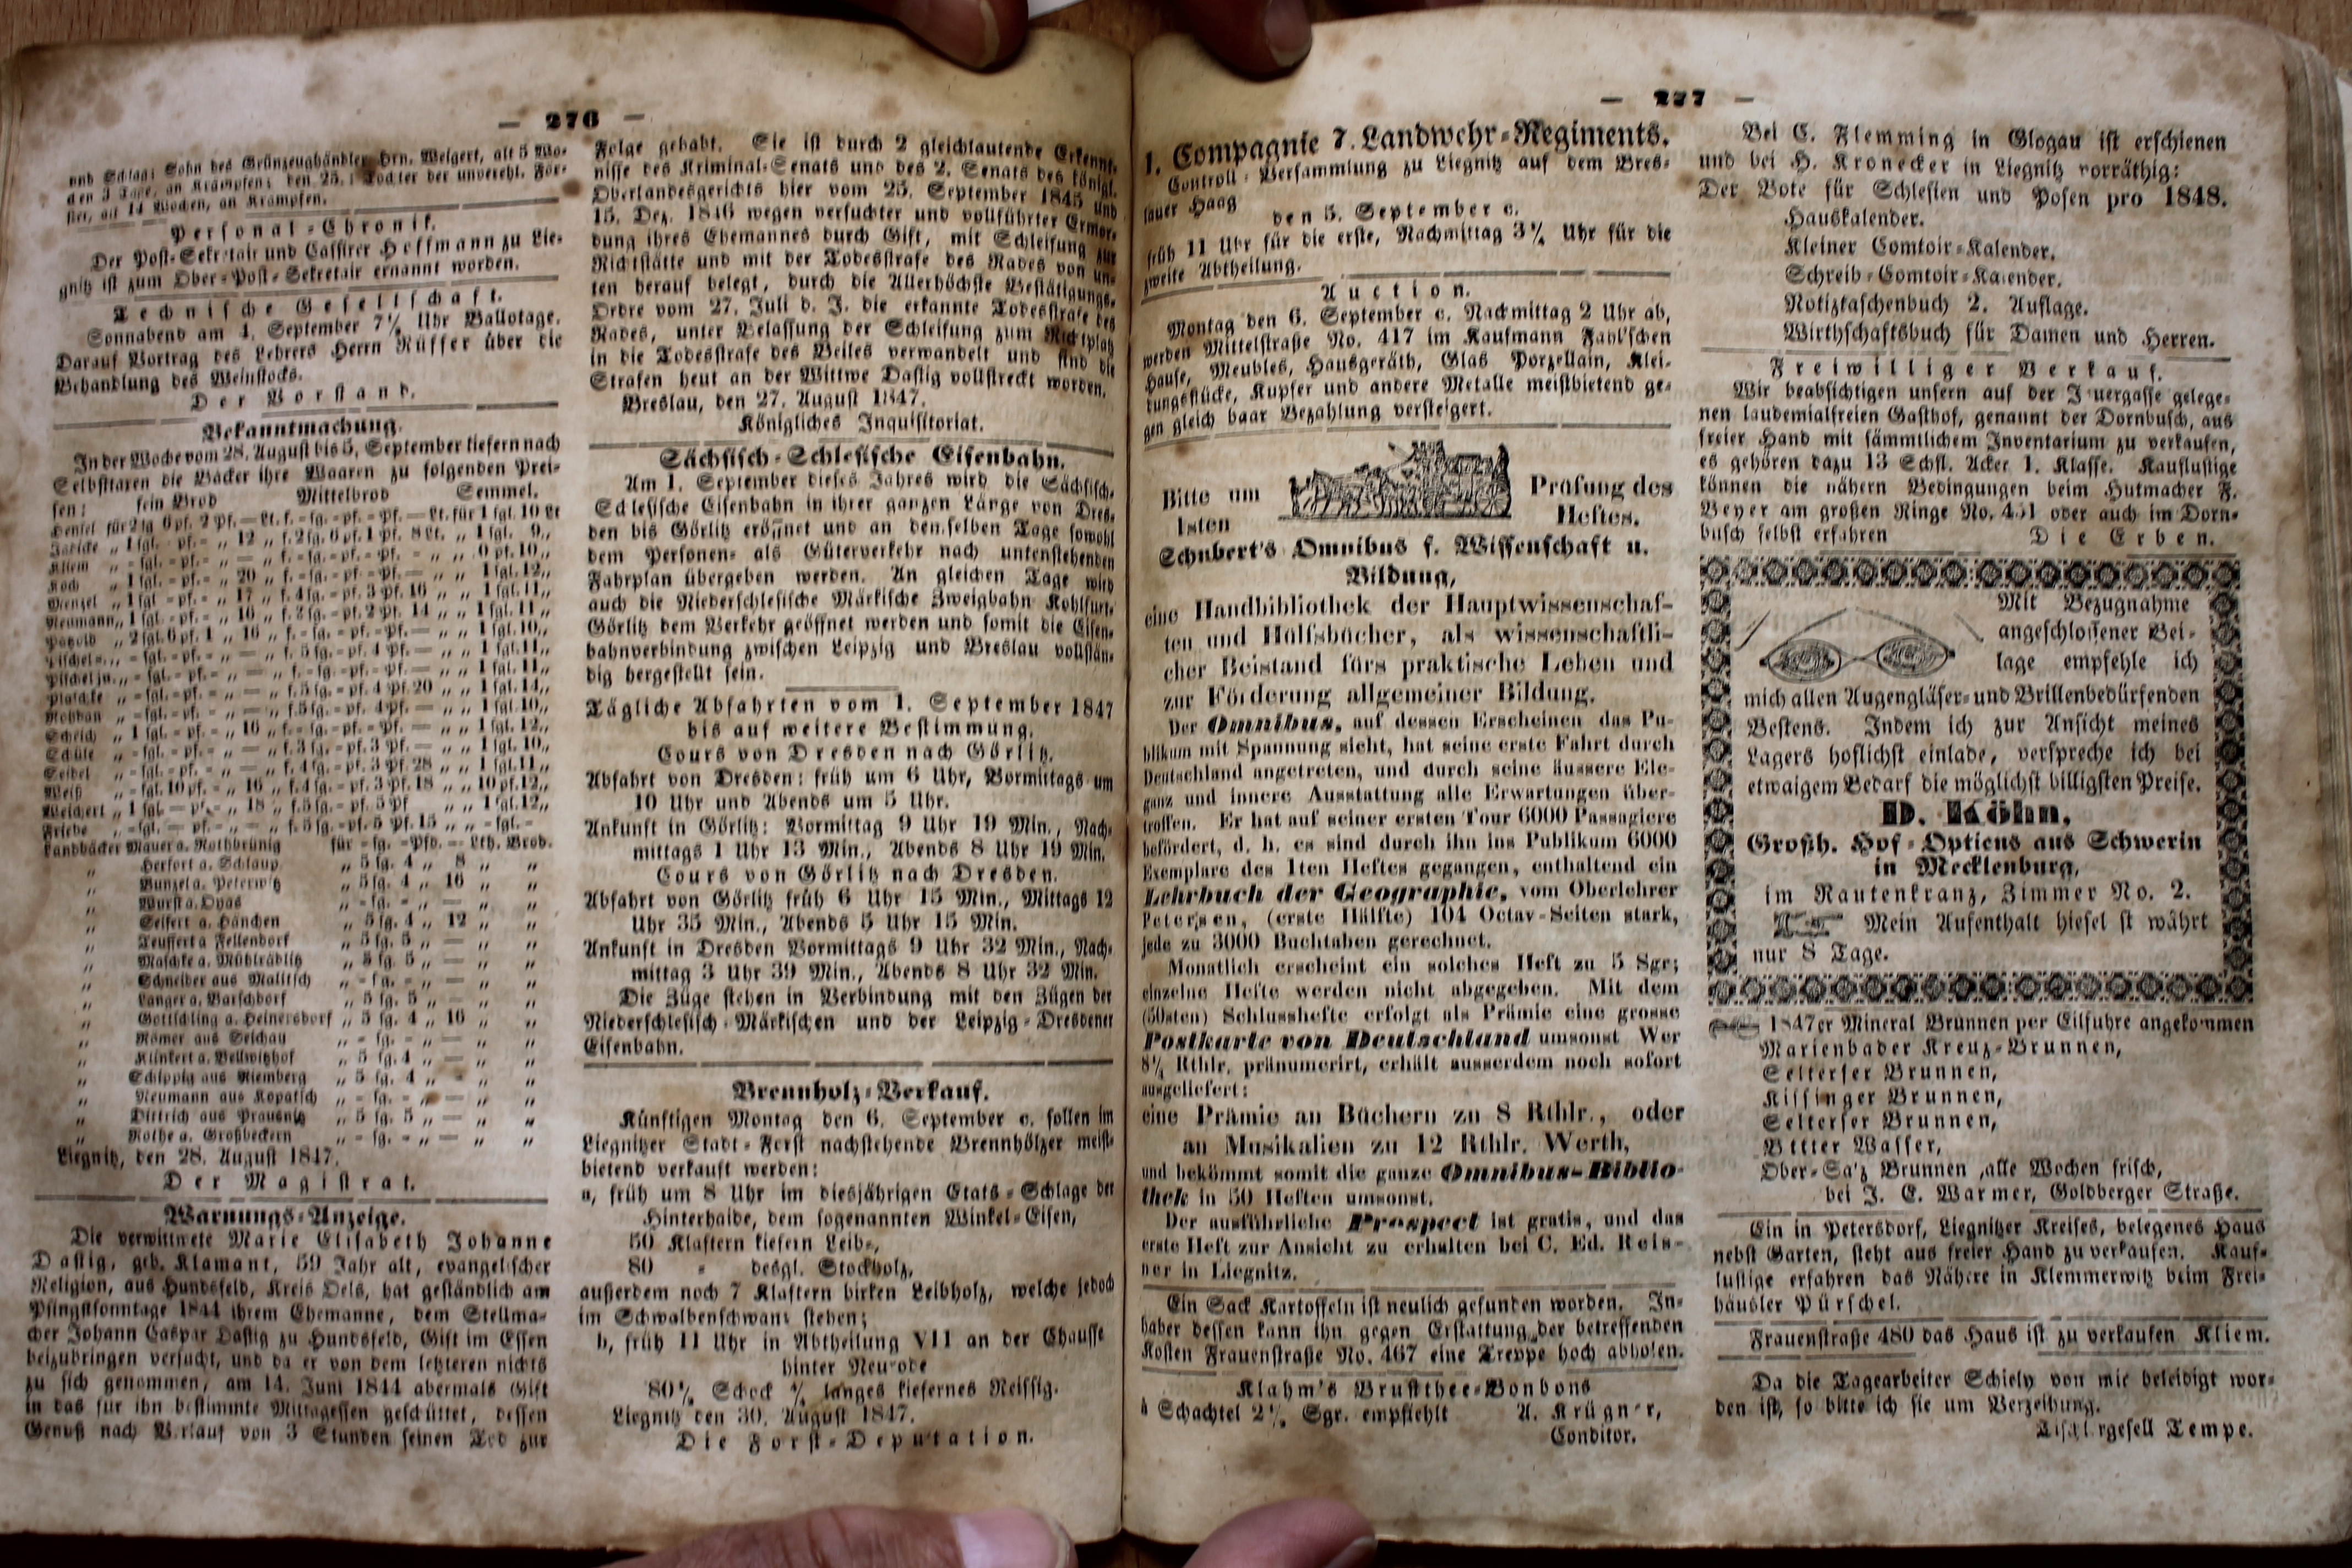 — 276 —
und Schlag; Sohn des Grünzeughändler Hrn. Weigert, alt 5 Wo-
den 3 Tage, an Krämpfen; den 25.: Tochter der unverehl. För-
ster, alt 14 Wochen, an Krämpfen.
Personal-Chronik.
Der Post-Sekretair und Cassirer Hoffmann zu Lie-
gnitz ist zum Ober-Post-Sekretair ernannt worden.
Technische Gesellschaft.
Sonnabend am 4. September 7½ Uhr Ballotage.
Darauf Vortrag des Lehrers Herrn Rüffer über die
Behandlung des Weinstocks.
Der Vorstand.
Bekanntmachung.
In der Woche vom 28. August bis 5. September liefern nach
Selbsttaxen die Bäcker ihre Waaren zu folgenden Prei-
sen: fein Brod Mittelbrod Semmel.
Landbäcker Mauer a. Rothbrünig für - sg. - Pfd. — Lth. Brod.
„ Herfort a. Schlaup „ 5 sg. 4 „ 8 „ „
„ Bunzel a. Peterwitz „ 5 sg. 4 „ 16 „ „
„ Wurst a. Dyas „ - sg. - „ — „ „
„ Seifert a. Hänchen „ 5 sg. 4 „ 12 „ „
„ Teuffert a Fellendorf „ 5 sg. 5 „ — „ „
„ Maschke a. Mühlrädlitz „ 5 sg. 5 „ — „ „
„ Schneider aus Malitsch „ - sg. - „ — „ „
„ Langer a. Barschdorf „ 5 sg. 5 „ — „ „
„ Gottschling a. Heinersdorf „ 5 sg. 4 „ 16 „ „
„ Römer aus Seichau „ - sg. - „ — „ „
„ Klinkert a. Bellwitzhof „ 5 sg. 4 „ — „ „
„ Schippig aus Niemberg „ 5 sg. 4 „ - „ „
„ Neumann aus Kopatsch „ - sg. - „ — „ „
„ Dittrich aus Prausnitz „ 5 sg. 5 „ — „ „
„ Rothe a. Großbeckern „ - sg. - „ — „ „
Liegnitz, den 28. August 1847.
Der Magistrat.
Warnungs-Anzeige.
Die verwittwete Marie Elisabeth Johanne
Dastig, geb. Klamant, 59 Jahr alt, evangelischer
Religion, aus Hundsfeld, Kreis Oels, hat geständlich am
Pfingstsonntage 1844 ihrem Ehemanne, dem Stellma-
cher Johann Caspar Dastig zu Hundsfeld, Gift im Essen
beizubringen versucht, und da er von dem letzteren nichts
zu sich genommen, am 14. Juni 1844 abermals Gift
in das für ihn bestimmte Mittagessen geschüttet, dessen
Genuß nach Verlauf von 3 Stunden seinen Tod zur
Folge gehabt. Sie ist durch 2 gleichlautende Erkennt-
nisse des Kriminal-Senats und des 2. Senats des königl.
Oberlandesgerichts hier vom 25. September 1845 und
15. Dez. 1846 wegen versuchter und vollführter Ermor-
dung ihres Ehemannes durch Gift, mit Schleifung zur
Richtstätte und mit der Todesstrafe des Rades von un-
ten herauf belegt, durch die Allerhöchste Bestätigungs-
Ordre vom 27. Juli d. J. die erkannte Todesstrafe des
Rades, unter Belassung der Schleifung zum Richtplatz
in die Todesstrafe des Beiles verwandelt und sind die
Strafen heut an der Wittwe Dastig vollstreckt worden.
Breslau, den 27. August 1847.
Königliches Inquisitoriat.
Sächsisch-Schlesische Eisenbahn.
Am 1. September dieses Jahres wird die Sächsisch-
Schlesische Eisenbahn in ihrer ganzen Länge von Dres-
den bis Görlitz eröffnet und an demselben Tage sowohl
dem Personen- als Güterverkehr nach untenstehenden
Fahrplan übergeben werden. An gleichen Tage wird
auch die Niederschlesische Märkische Zweigbahn Kohlfurt-
Görlitz dem Verkehr geöffnet werden und somit die Eisen-
bahnverbindung zwischen Leipzig und Breslau vollstän-
dig hergestellt sein.
Tägliche Abfahrten vom 1. September 1847
bis auf weitere Bestimmung.
Cours von Dresden nach Görlitz.
Abfahrt von Dresden: früh um 6 Uhr, Vormittags um
10 Uhr und Abends um 5 Uhr.
Ankunft in Görlitz: Vormittag 9 Uhr 19 Min., Nach-
mittags 1 Uhr 13 Min., Abends 8 Uhr 19 Min.
Cours von Görlitz nach Dresden.
Abfahrt von Görlitz früh 6 Uhr 15 Min., Mittags 12
Uhr 35 Min., Abends 5 Uhr 15 Min.
Ankunft in Dresden Vormittags 9 Uhr 32 Min., Nach-
mittag 3 Uhr 39 Min., Abends 8 Uhr 32 Min.
Die Züge stehen in Verbindung mit den Zügen der
Niederschlesisch-Märkischen und der Leipzig-Dresdener
Eisenbahn.
Brennholz-Verkauf.
Künftigen Montag den 6. September c. sollen im
Liegnitzer Stadt-Forst nachstehende Brennhölzer meist-
bietend verkauft werden:
a, früh um 8 Uhr im diesjährigen Etats-Schlage der
Hinterhaide, dem sogenannten Winkel-Eisen,
50 Klaftern kiefern Leib-,
80 - desgl. Stockholz,
außerdem noch 7 Klaftern birken Leibholz, welche jedoch
im Schwalbenschwanz stehen;
b, früh 11 Uhr in Abtheilung VII an der Chausse
hinter Neurode
80¼ Schock ¼ langes kiefernes Reissig.
Liegnitz den 30. August 1847.
Die Forst-Deputation.
— 277 —
1. Compagnie 7. Landwehr-Regiments.
Controll-Versammlung zu Liegnitz auf dem Bres-
lauer Haag
den 5. September c.
früh 11 Uhr für die erste, Nachmittag 3½ Uhr für die
zweite Abtheilung.
Auction.
Montag den 6. September c. Nachmittag 2 Uhr ab,
werden Mittelstraße No. 417 im Kaufmann Fahl'schen
Hause, Meubles, Hausgeräth, Glas Porzellain, Klei-
dungsstücke, Kupfer und andere Metalle meistbietend ge-
gen gleich baar Bezahlung versteigert.
Bitte um Prüfung des
1sten Heftes.
Schubert's Omnibus f. Wissenschaft u.
Bildung,
eine Handbibliothek der Hauptwissenschaf-
ten und Hülfsbücher, als wissenschaftli-
cher Beistand fürs praktische Leben und
zur Förderung allgemeiner Bildung.
Der Omnibus, auf dessen Erscheinen das Pu-
blikum mit Spannung sieht, hat seine erste Fahrt durch
Deutschland angetreten, und durch seine äussere Ele-
ganz und innere Ausstattung alle Erwartungen über-
troffen. Er hat auf seiner ersten Tour 6000 Passagiere
befördert, d. h. es sind durch ihn ins Publikum 6000
Exemplare des 1ten Heftes gegangen, enthaltend ein
Lehrbuch der Geographie, vom Oberlehrer
Petersen, (erste Hälfte) 104 Octav-Seiten stark,
jede zu 3000 Buchtaben gerechnet.
Monatlich erscheint ein solches Heft zu 5 Sgr;
einzelne Hefte werden nicht abgegeben. Mit dem
(50sten) Schlusshefte erfolgt als Prämie eine grosse
Postkarte von Deutschland umsonst Wer
8¼ Rthlr. pränumerirt, erhält ausserdem noch sofort
ausgeliefert:
eine Prämie an Büchern zu 8 Rthlr., oder
an Musikalien zu 12 Rthlr. Werth,
und bekömmt somit die ganze Omnibus-Biblio-
thek in 50 Heften umsonst.
Der ausführliche Prospect ist gratis, und das
erste Heft zur Ansicht zu erhalten bei C. Ed. Reis-
ner in Liegnitz.
Ein Sack Kartoffeln ist neulich gefunden worden. In-
haber dessen kann ihn gegen Erstattung der betreffenden
Kosten Frauenstraße No. 467 eine Treppe hoch abholen.
Klahm's Brustthee-Bonbons
à Schachtel 2½ Sgr. empfiehlt A. Krügner,
Conditor.
Bei C. Flemming in Glogau ist erschienen
und bei H. Kronecker in Liegnitz vorräthig:
Der Bote für Schlesien und Posen pro 1848.
Hauskalender.
Kleiner Comtoir-Kalender.
Schreib-Comtoir-Kalender.
Notiztaschenbuch 2. Auflage.
Wirthschaftsbuch für Damen und Herren.
Freiwilliger Verkauf.
Wir beabsichtigen unsern auf der Jauergasse gelege-
nen laudemialfreien Gasthof, genannt der Dornbusch, aus
freier Hand mit sämmtlichem Inventarium zu verkaufen,
es gehören dazu 13 Schfl. Acker 1. Klasse. Kauflustige
können die nähern Bedingungen beim Hutmacher F.
Beyer am großen Ringe No. 451 oder auch im Dorn-
busch selbst erfahren Die Erben.
Mit Bezugnahme
angeschlossener Bei-
lage empfehle ich
mich allen Augengläser- und Brillenbedürfenden
Bestens. Indem ich zur Ansicht meines
Lagers höflichst einlade, verspreche ich bei
etwaigem Bedarf die möglichst billigsten Preise.
D. Köhn,
Großh. Hof-Opticus aus Schwerin
in Mecklenburg,
im Rautenkranz, Zimmer No. 2.
Mein Aufenthalt hieselbst währt
nur 8 Tage.
1847er Mineral Brunnen per Eilfuhre angekommen
Marienbader Kreuz-Brunnen,
Selterser Brunnen,
Kissinger Brunnen,
Selterser Brunnen,
Bitter Wasser,
Ober-Salz Brunnen ,alle Wochen frisch,
bei J. E. Warmer, Goldberger Straße.
Ein in Petersdorf, Liegnitzer Kreises, belegenes Haus
nebst Garten, steht aus freier Hand zu verkaufen. Kauf-
lustige erfahren das Nähere in Klemmerwitz beim Frei-
häusler Pürschel.
Frauenstraße 480 das Haus ist zu verkaufen Kliem.
Da die Tagearbeiter Schiely von mir beleidigt wor-
den ist, so bitte ich sie um Verzeihung.
Tischlergesell Tempe.